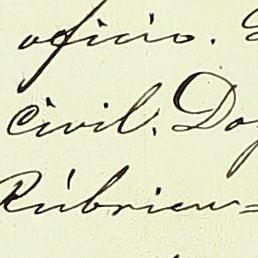 oficio.
civil. Doy
Rúbricas=